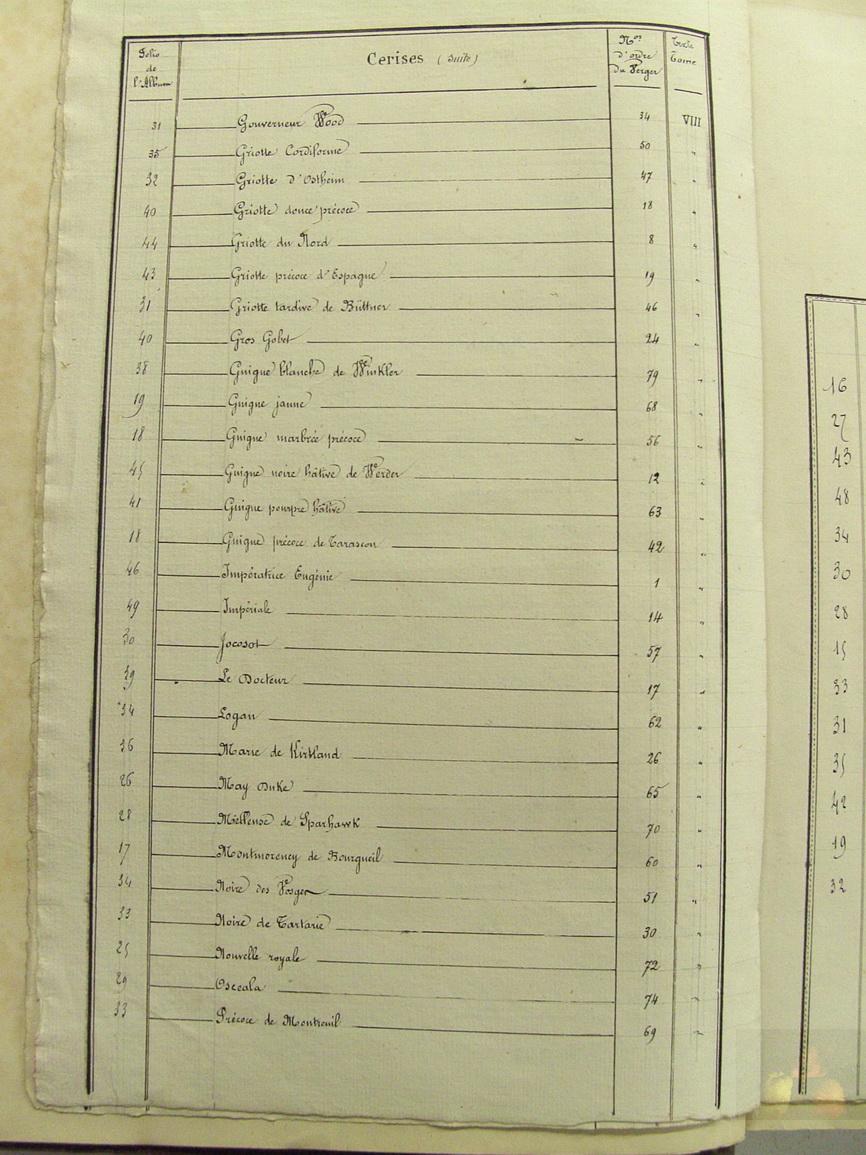 Folio de l'Album Cerises (suite) Nos d'ordre du Verger Texte Tome
31 Gouverneur Wood 34 VIII
35 Griotte Cordiforme 50 "
32 Griotte d'Ostheim 47 "
40 Griotte douce précoce 18 "
44 Griotte du Nord 8 "
43 Griotte précoce d'Espagne 19 "
31 Griotte tardive de Büttner 46 "
40 Gros Gobet 24 "
38 Guigne blanche de Winkler 79 "
19 Guigne jaune 68 "
18 Guigne marbrée précoce 56 "
45 Guigne noire hâtive de Werder 12 "
41 Guigne pourpre hâtive 63 "
18 Guigne précoce de Tarascon 42 "
46 Impératrice Eugénie 1 "
49 Impériale 14 "
30 Jocosot 57 "
39 Le Docteur 17 "
34 Logan 62 "
36 Marie de Kirtland 26 "
26 May Duke 65 "
28 Mielleuse de Sparhawk 70 "
17 Montmorency de Bourgueil 60 "
34 Noire des Vosges 51 "
33 Noire de Tartarie 30 "
25 Nouvelle royale 72 "
29 Osceola 74 "
33 Précoce de Montreuil 69 "
16
27
43
48
34
30
28
15
33
31
35
42
19
32